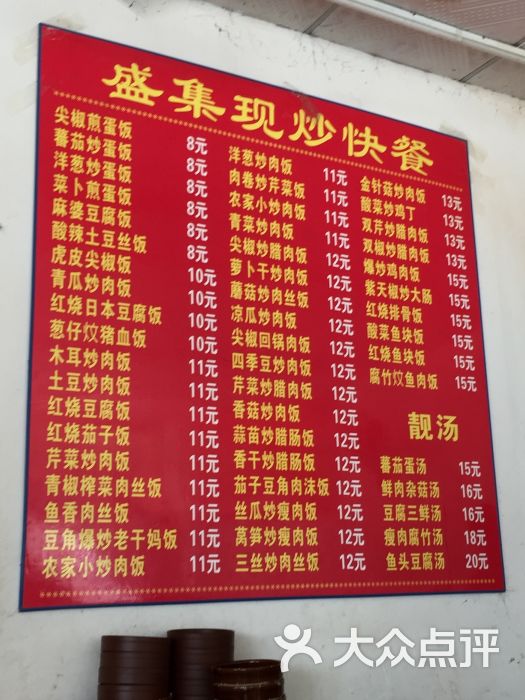 盛集现炒快餐
尖椒煎蛋饭 8元
蕃茄炒蛋饭 8元
洋葱炒蛋饭 8元
菜卜煎蛋饭 8元
麻婆豆腐饭 8元
酸辣土豆丝饭 8元
虎皮尖椒饭 10元
青瓜炒肉饭 10元
红烧日本豆腐饭 10元
葱仔炆猪血饭 10元
木耳炒肉饭 11元
土豆炒肉饭 11元
红烧豆腐饭 11元
红烧茄子饭 11元
芹菜炒肉饭 11元
青椒榨菜肉丝饭 11元
鱼香肉丝饭 11元
豆角爆炒老干妈饭 11元
农家小炒肉饭 11元
洋葱炒肉饭 11元
肉卷炒芹菜饭 11元
农家小炒肉饭 11元
青菜炒肉饭 11元
尖椒炒腊肉饭 12元
萝卜干炒肉饭 12元
蘑菇炒肉丝饭 12元
凉瓜炒肉饭 12元
尖椒回锅肉饭 12元
四季豆炒肉饭 12元
芹菜炒腊肉饭 12元
香菇炒肉饭 12元
蒜苗炒腊肠饭 12元
香干炒腊肠饭 12元
茄子豆角肉沫饭 12元
丝瓜炒瘦肉饭 12元
莴笋炒瘦肉饭 12元
三丝炒肉丝饭 12元
金针菇炒肉饭 13元
酸菜炒鸡丁 13元
双芹炒腊肉饭 13元
双椒炒腊肉饭 13元
爆炒鸡肉饭 15元
紫天椒炒大肠 15元
红烧排骨饭 15元
酸菜鱼块饭 15元
红烧鱼块饭 15元
腐竹炆鱼肉饭 15元
靓汤
蕃茄蛋汤 15元
鲜肉杂菇汤 16元
豆腐三鲜汤 16元
瘦肉腐竹汤 18元
鱼头豆腐汤 20元
大众点评